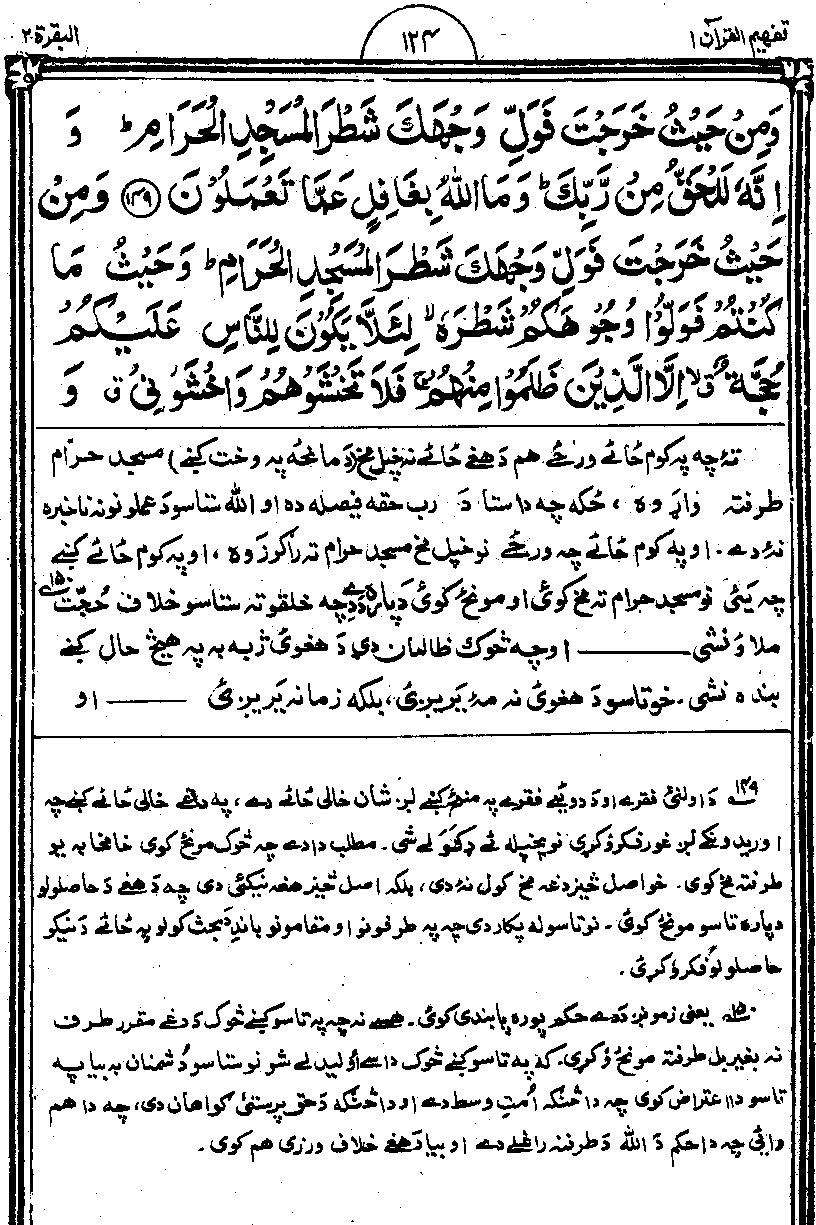 تفهیم القرآن ۱
۱۲۴
البقرة ۲
وَمِنْ حَيْثُ خَرَجْتَ فَوَلِّ وَجْهَكَ شَطْرَ الْمَسْجِدِ الْحَرَامِ ؕ وَ
اِنَّهٗ لَلْحَقُّ مِنْ رَّبِّكَ ؕ وَمَا اللّٰهُ بِغَافِلٍ عَمَّا تَعْمَلُوْنَ ﴿۱۴۹﴾ وَمِنْ
حَيْثُ خَرَجْتَ فَوَلِّ وَجْهَكَ شَطْرَ الْمَسْجِدِ الْحَرَامِ ؕ وَحَيْثُ مَا
كُنْتُمْ فَوَلُّوْا وُجُوْهَكُمْ شَطْرَهٗ ۙ لِئَلَّا يَكُوْنَ لِلنَّاسِ عَلَيْكُمْ
حُجَّةٌ ۙ اِلَّا الَّذِيْنَ ظَلَمُوْا مِنْهُمْ ۚ فَلَا تَخْشَوْهُمْ وَاخْشَوْنِیْ ۗ وَ
تۀ چه په کوم ځائے ورځے هم دَ هغے ځائے نه خپل مخ (دَ مانځۀ په وخت کښے) مسجد حرام
طرفته واړوه ، ځکه چه دا ستا دَ رب حقه فیصله ده او الله ستاسو دَ عملونو نه ناخبره
نۀ دے . او په کوم ځائے چه ورځے نو خپل مخ مسجد حرام ته راګرزوه ، او په کوم ځائے کښے
چه یئی نو مسجد حرام ته مخ کوئ او مونځ کوئ دَپاره دَدے چه خلقو ته ستاسو خلاف حُجّت ۱۵۰
ملاؤ نشی ——— او چه څوک ظالمان دی دَ هغوئ ژبه به په هیڅ حال کښے
بنده نشی . خو تاسو دَ هغوئ نه مۀ یریږئ ، بلکه زما نه یریږئ ——— او
۱۴۹ دَ اولنئ فقرے او دَ دویمے فقرے په منځ کښے لږ شان خالی ځائے دے ، په دغے خالی ځائے کښے چه
اوریدونکے لږ غور فکر وکړی نو پخپله ئے ډکولے شی . مطلب دا دے چه څوک مونځ کوی خامخا به یو
طرفته مخ کوی . خو اصل څیز دغه مخ کول نۀ دی ، بلکه اصل څیز هغه نیکئی دی چه دَ هغے دَ حاصلولو
دپاره تاسو مونځ کوئ . نو تاسو له پکار دی چه په طرفونو او مقامونو باندے دَ بحث کولو په ځائے دَ نیکو
حاصلولو فکر وکړئ .
۱۵۰ یعنی زمونږ دَدے حکم پوره پابندی کوئ . هسے نه چه په تاسو کښے څوک دَ دغے مقرر طرف
نه بغیر بل طرفته مونځ وکړی . که په تاسو کښے څوک داسے اولیدلے شو نو ستاسو دُشمنان به بیا په
تاسو دا اعتراض کوی چه دا څنګه اُمتِ وسط دے او دا څنګه دَ حق پرستئ ګواهان دی ، چه دا هم
وائی چه دا حکم دَ الله دَ طرفنه راغلے دے او بیا دَ هغے خلاف ورزی هم کوی .